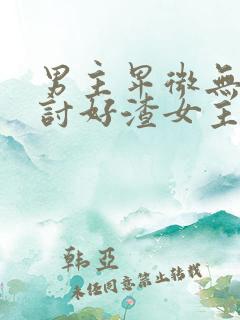 男主卑微無
討好渣女主
韩亞
未任同意禁止转载